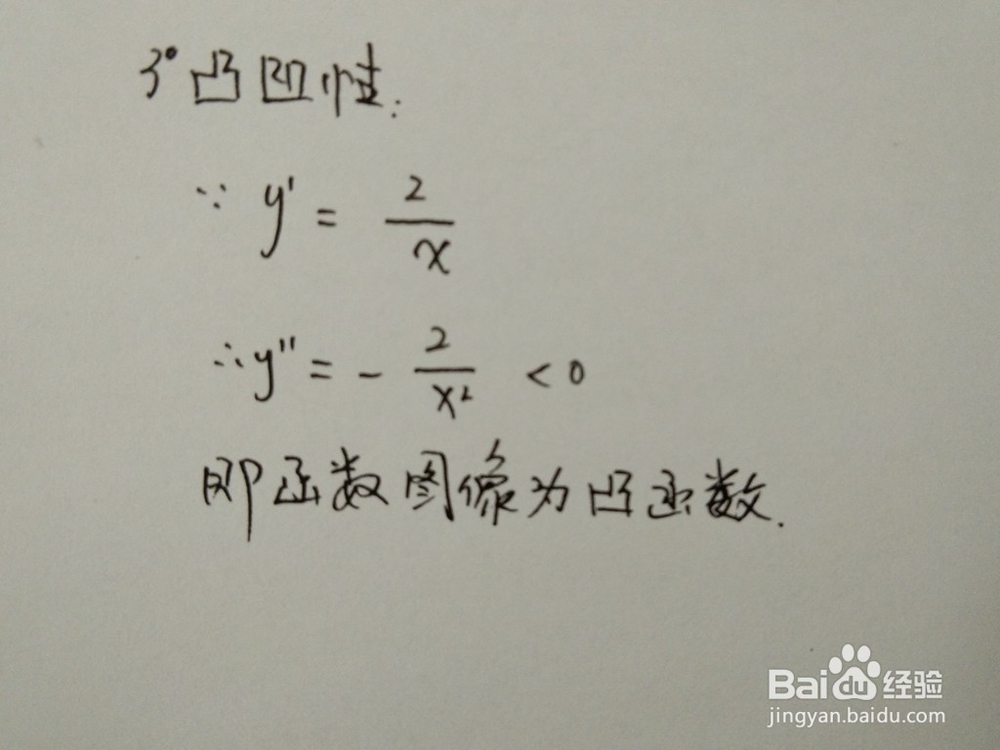 3° 凸凹性:
∵ y' = 2/x
∴ y'' = - 2/x² < 0
即函数图像为凸函数.
Baidu经验
jingyan.baidu.com